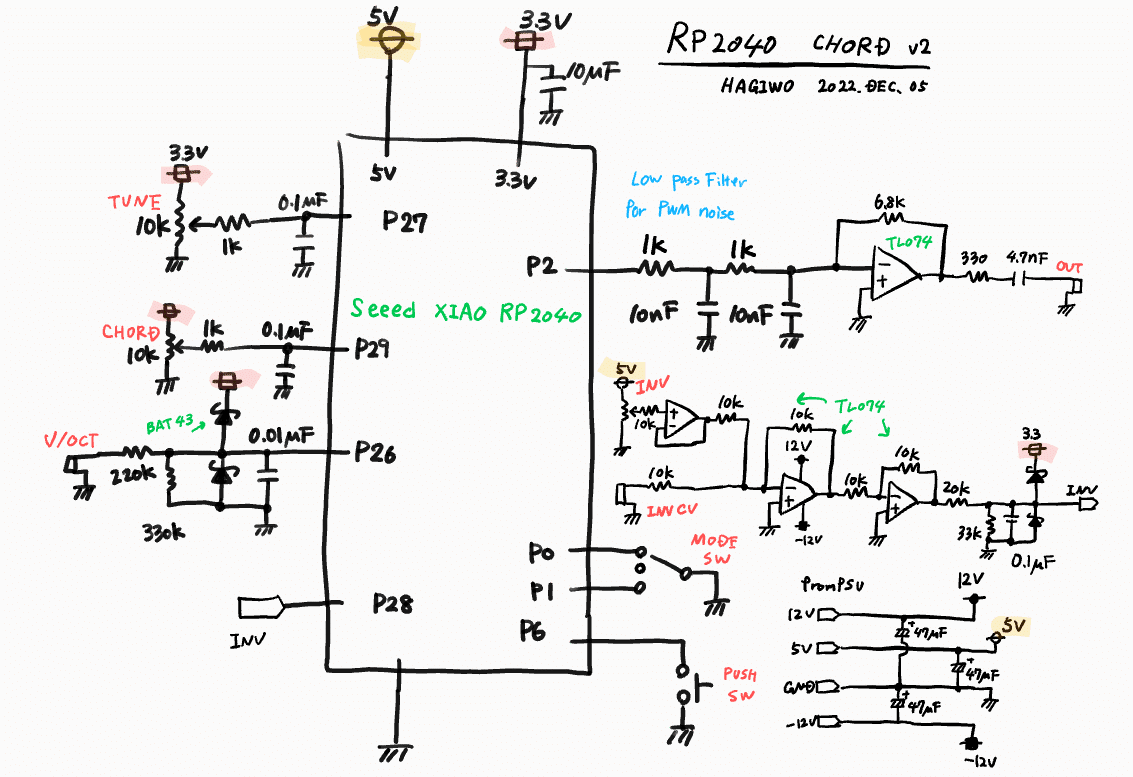 RP2040 CHORD v2
HAGIWO 2022.DEC.05
5V
3.3V
10μF
5V
3.3V
3.3V
TUNE
10k
1k
0.1μF
P27
CHORD
10k
1k
0.1μF
P29
Seeed XIAO RP2040
V/OCT
BAT43
220k
330k
0.01μF
P26
INV
P28
P2
Low pass Filter
for PWM noise
1k
1k
10nF
10nF
6.8k
TL074
330
4.7nF
OUT
5V
INV
10k
10k
10k
TL074
12V
-12V
10k
INV CV
10k
10k
20k
33k
0.1μF
3.3
INV
P0
P1
MODE
SW
P6
PUSH
SW
From PSU
12V
12V
+
47μF
5V
5V
+
47μF
GND
+
47μF
-12V
-12V